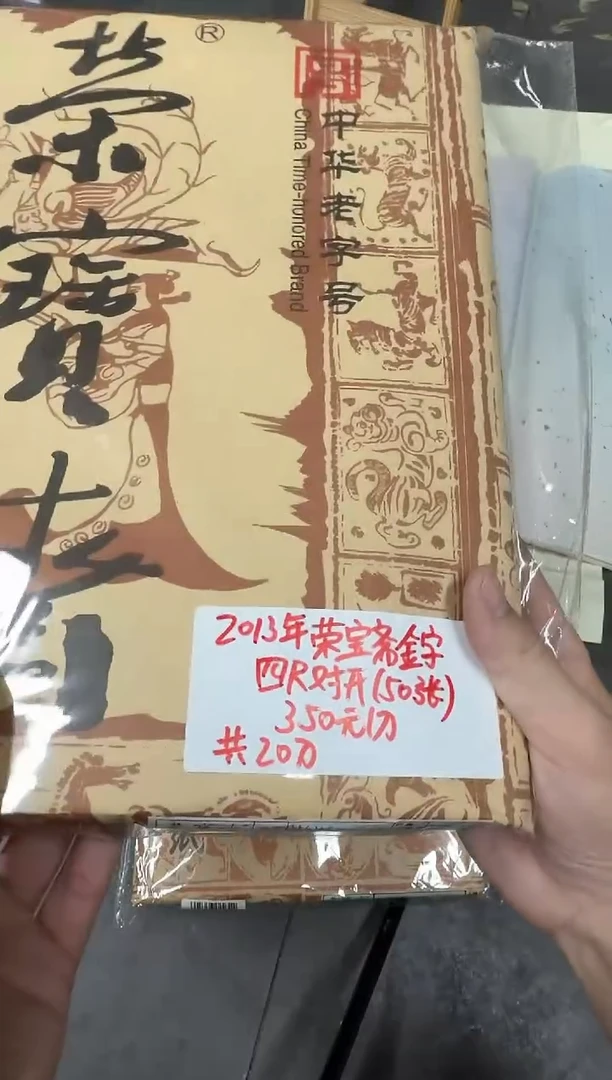 荣宝斋制
®
中华老字号
China Time-honored Brand
2013年荣宝斋金字
四尺对开(50张)
350元/刀
共20刀